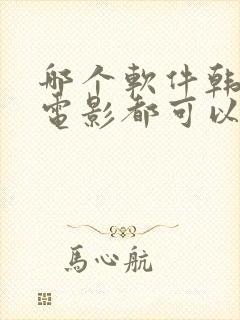 那个軟件韩
電影都可以
馬心航